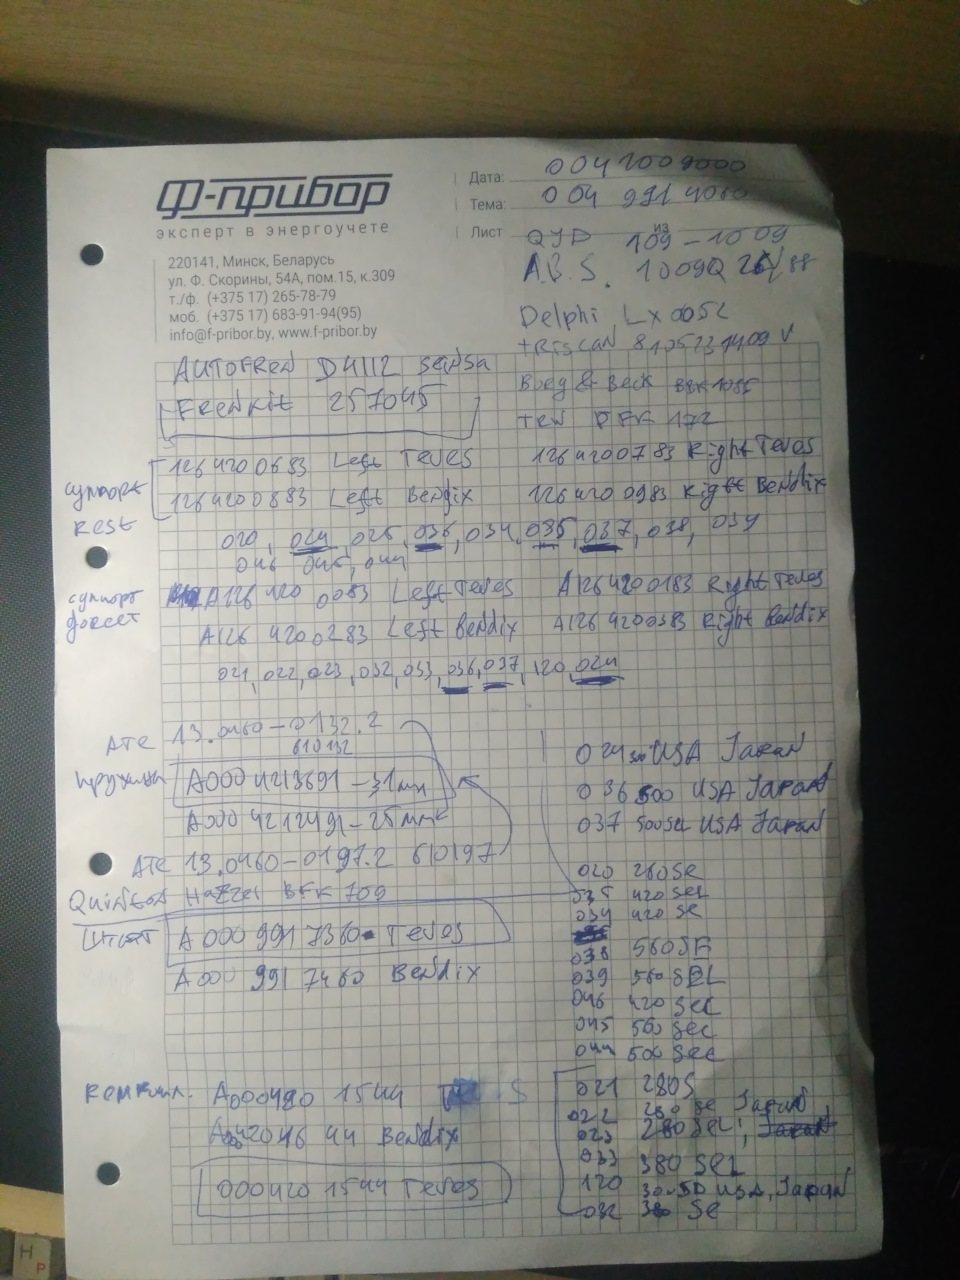 Ф-прибор
эксперт в энергоучете
220141, Минск, Беларусь
ул. Ф. Скорины, 54А, пом.15, к.309
т./ф. (+375 17) 265-78-79
моб. (+375 17) 683-91-94(95)
info@f-pribor.by, www.f-pribor.by
Дата: 0042009000
Тема: 004 991 4060
Лист из
QJD 109-1009
A.B.S. 1009Q /88
Delphi LX0052
TRISCAN 8105231409 V
Borg & Beck BBK1085
TRW PFK 172
AUTOFREN D4112 seinsa
FRENKit 257045
суппорт 126 420 0683 Left Teves 126 420 0783 Right Teves
126 420 0883 Left Bendix 126 420 0983 Right Bendix
Rest 020, 024, 025, 036, 034, 035, 037, 038, 039
046 045, 044
суппорт A126 420 0083 Left Teves A126 420 0183 Right Teves
дорест A126 420 0283 Left Bendix A126 420 0383 Right Bendix
021, 022, 023, 032, 033, 036, 037, 120, 024
ATE 13.0460-0132.2
610132
пружина A000 4213691 - 31мм
A000 4212491 - 25мм
ATE 13.0460-0197.2 610197
Quinton Hazzel BFK 709
Штифт A 000 991 7360 Teves
A000 991 7460 Bendix
024 300 USA Japan
036 500 USA Japan
037 500SEL USA Japan
020 280SE
035 420 SEL
034 420 SE
038 560SE
039 560 SEL
046 420 SEC
045 560 SEC
044 500 SEC
ремкомпл. A000420 1544
46 44 Bendix
000420 1544 Teves
021 280S
022 280 SE Japan,
023 280 SEL, Japan
033 380 SEL
120 300SD USA, Japan
032 380 SE